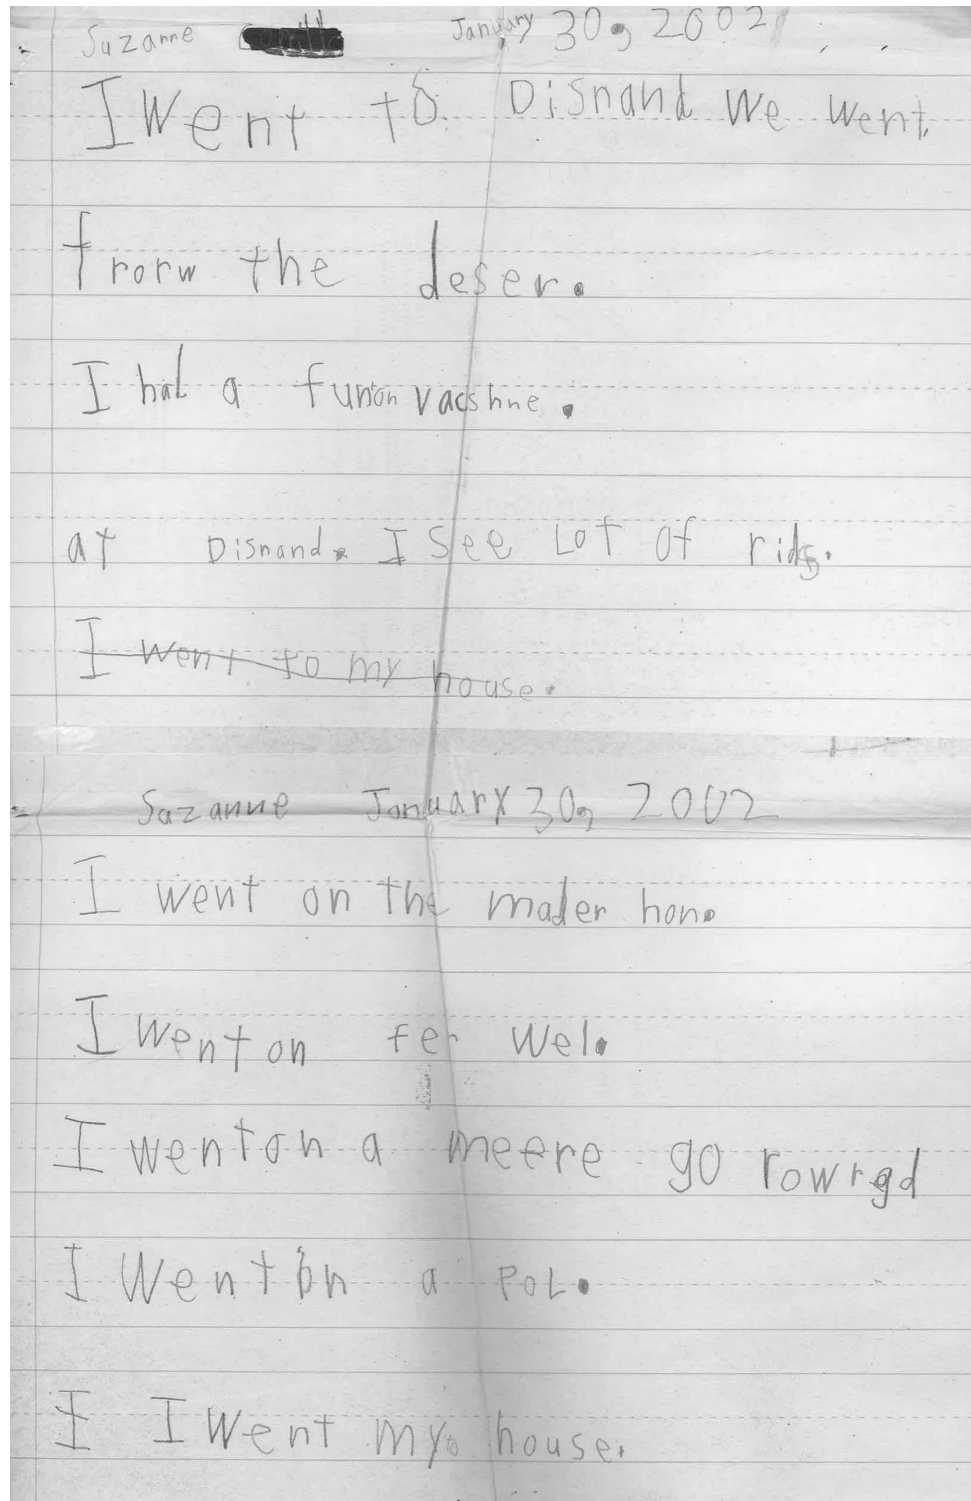 Suzanne January 30, 2002
I Went to Disnand We went
frorw the deser.
I had a funon vacshne.
at Disnand. I see Lot of rids.
I went to my house.
Suzanne January 30, 2002
I went on the mader hon.
I went on fer wel.
I went on a meere go rowrgd
I Went on a poL.
I I Went my to house.